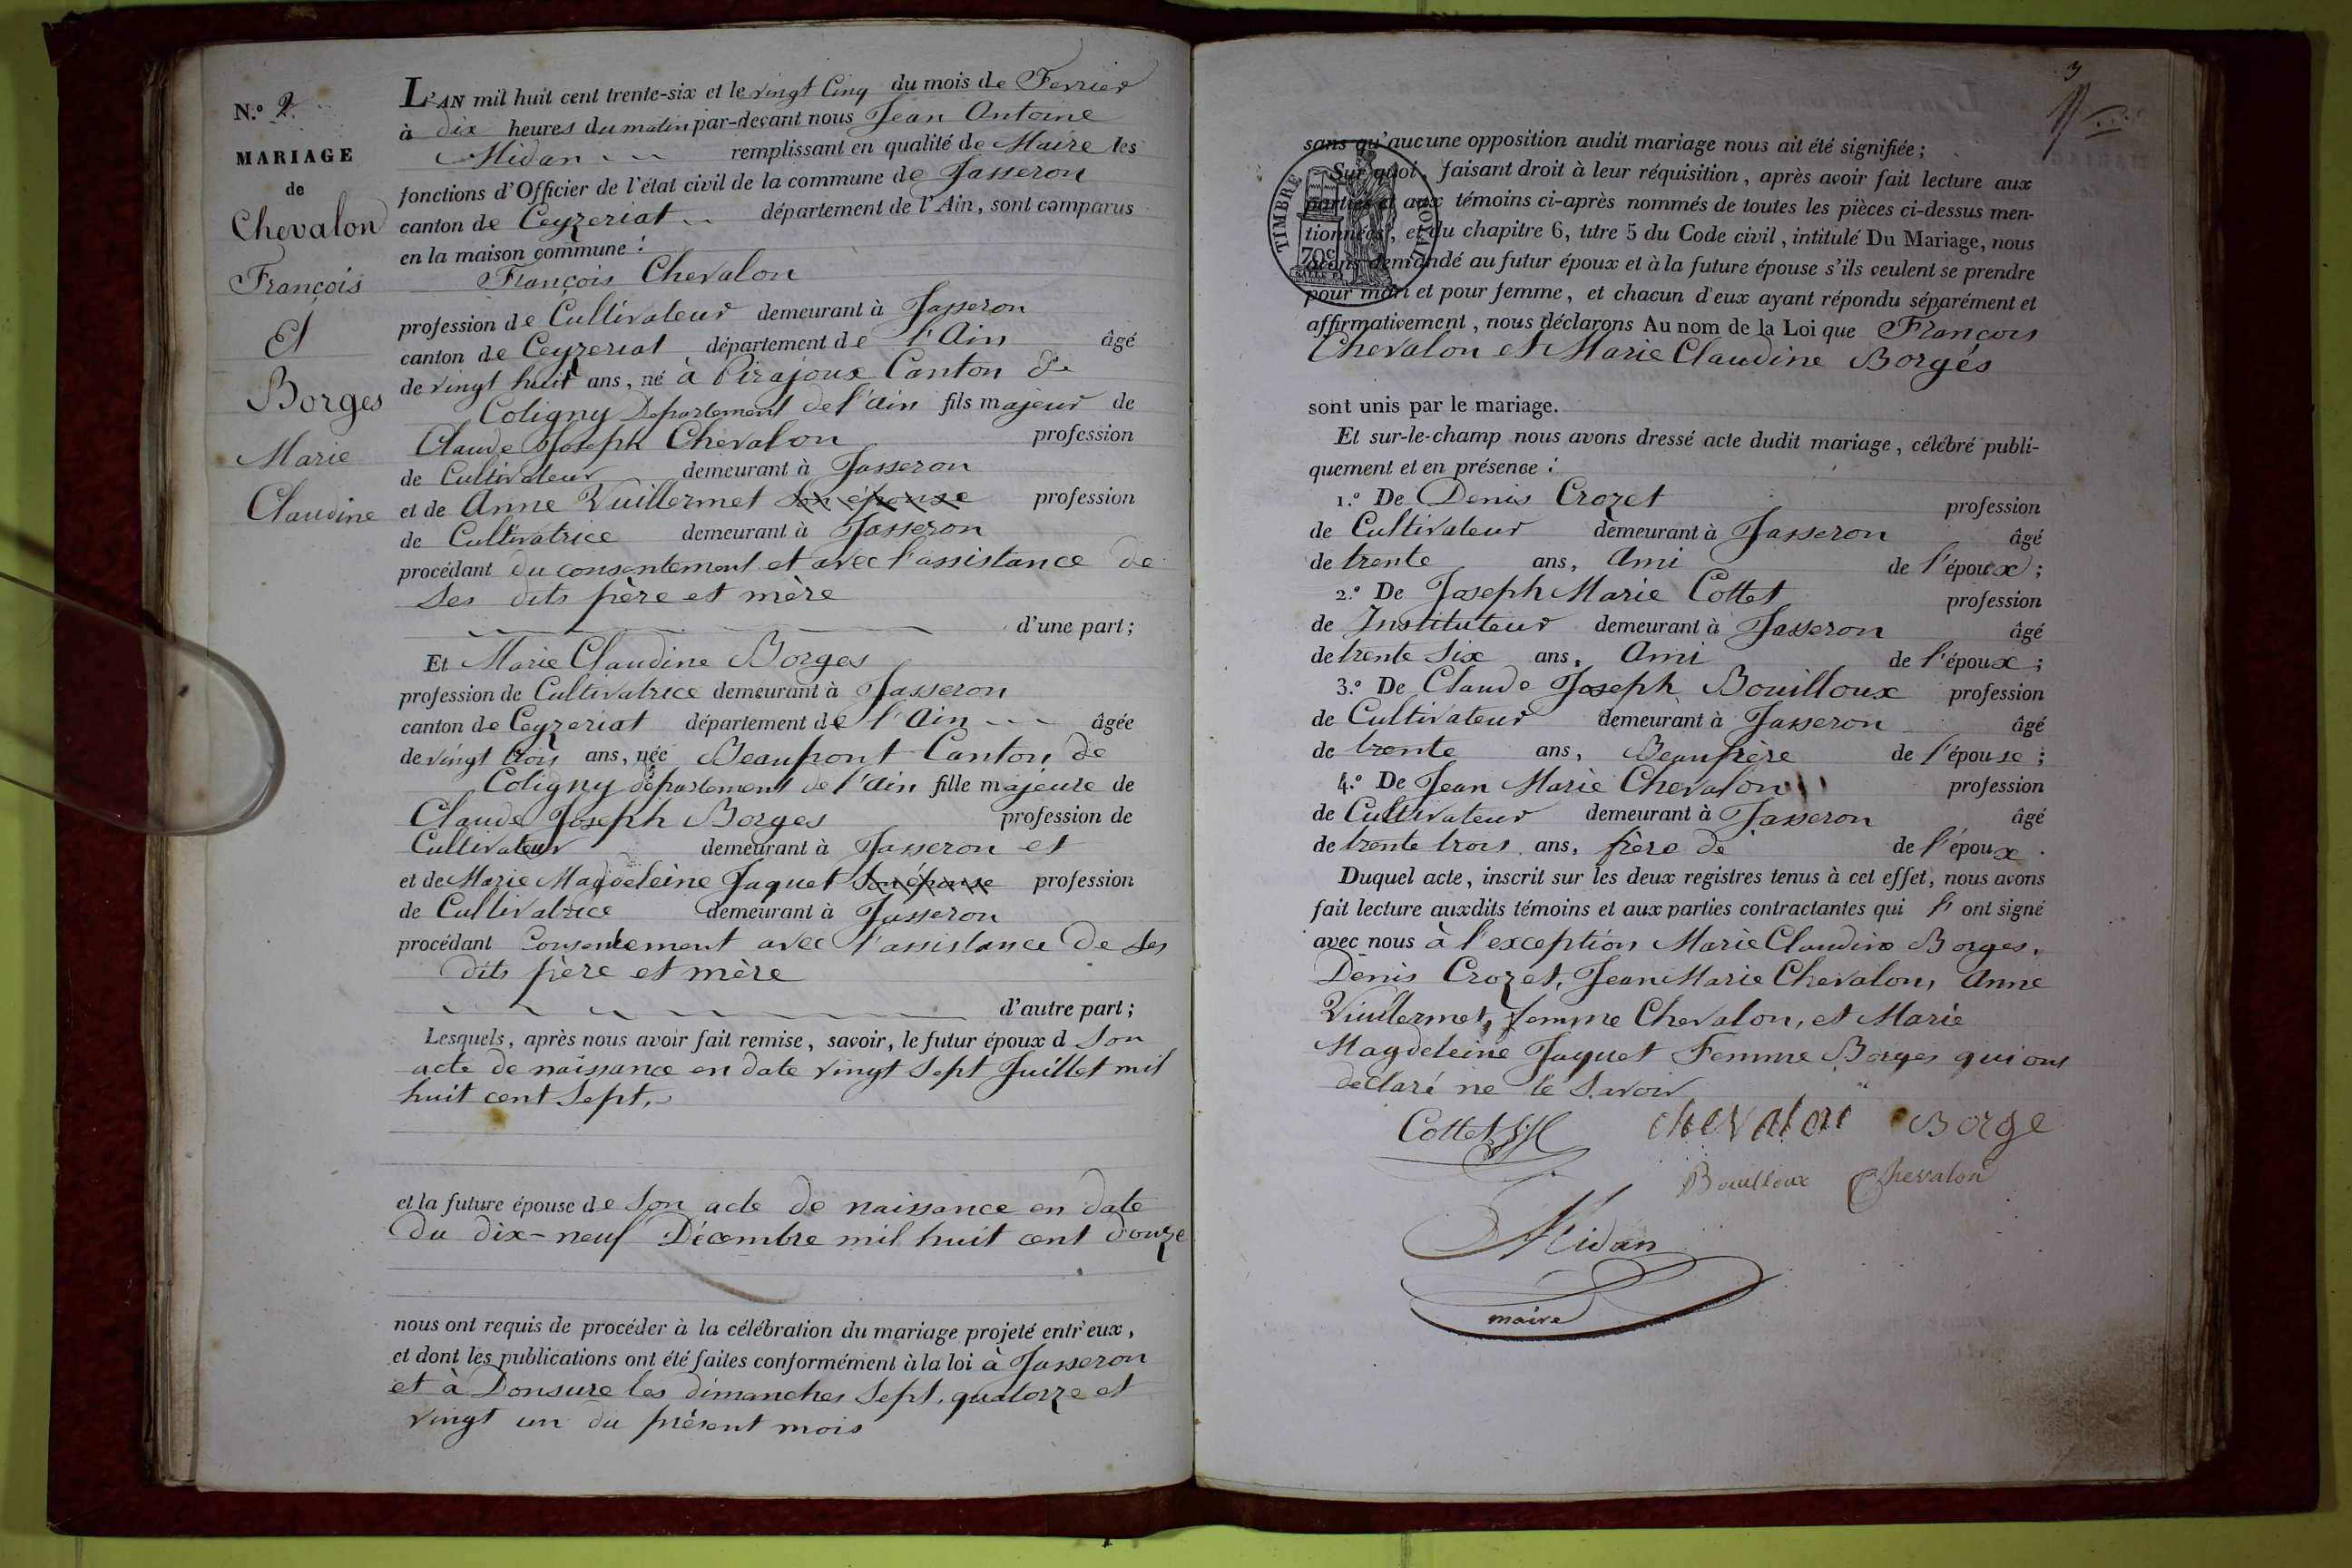 N.º 2.
MARIAGE
de
Chevalon
François
Et
Borges
Marie
Claudine
L'AN mil huit cent trente-six et le vingt Cinq du mois de Fevrier
à dix heures du matin par-devant nous Jean Antoine
Midan remplissant en qualité de Maire les
fonctions d'Officier de l'état civil de la commune de Jasseron
canton de Ceyzeriat département de l'Ain, sont comparus
en la maison commune :
François Chevalon
profession de Cultivateur demeurant à Jasseron
canton de Ceyzeriat département de l'Ain âgé
de vingt huit ans, né à Pirajoux Canton de
Coligny Departement de l'ain fils majeur de
Claude Joseph Chevalon profession
de Cultivateur demeurant à Jasseron
et de Anne Vuillermet son épouse profession
de Cultivatrice demeurant à Jasseron
procédant du consentement et avec l'assistance de
ses dits père et mère
d'une part ;
Et Marie Claudine Borges
profession de Cultivatrice demeurant à Jasseron
canton de Ceyzeriat département de l'Ain âgée
de vingt trois ans, née Beaupont Canton de
Coligny département de l'ain fille majeure de
Claude Joseph Borges profession de
Cultivateur demeurant à Jasseron et
et de Marie Magdeleine Jaquet son épouse profession
de Cultivatrice demeurant à Jasseron
procédant Consentement avec l'assistance de ses
dits père et mère
d'autre part ;
Lesquels, après nous avoir fait remise, savoir, le futur époux d son
acte de naissance en date vingt sept Juillet mil
huit cent sept.
et la future épouse de son acte de naissance en date
du dix-neuf Décembre mil huit cent douze
nous ont requis de procéder à la célébration du mariage projeté entr'eux,
et dont les publications ont été faites conformément à la loi à Jasseron
et à Donsure les dimanches sept, quatorze et
vingt un du présent mois
3
TIMBRE ROYAL
70c
sans qu'aucune opposition audit mariage nous ait été signifiée ;
Sur quoi, faisant droit à leur réquisition, après avoir fait lecture aux
parties et aux témoins ci-après nommés de toutes les pièces ci-dessus men-
tionnées, et du chapitre 6, titre 5 du Code civil, intitulé Du Mariage, nous
avons demandé au futur époux et à la future épouse s'ils veulent se prendre
pour mari et pour femme, et chacun d'eux ayant répondu séparément et
affirmativement, nous déclarons Au nom de la Loi que François
Chevalon et Marie Claudine Borges
sont unis par le mariage.
Et sur-le-champ nous avons dressé acte dudit mariage, célébré publi-
quement et en présence :
1.º De Denis Crozet profession
de Cultivateur demeurant à Jasseron âgé
de trente ans, Ami de l'époux ;
2.º De Joseph Marie Cottet profession
de Instituteur demeurant à Jasseron âgé
de trente six ans, Ami de l'époux ;
3.º De Claude Joseph Bouilloux profession
de Cultivateur demeurant à Jasseron âgé
de trente ans, Beaufrère de l'épouse ;
4.º De Jean Marie Chevalon profession
de Cultivateur demeurant à Jasseron âgé
de trente trois ans, frère de de l'époux.
Duquel acte, inscrit sur les deux registres tenus à cet effet, nous avons
fait lecture auxdits témoins et aux parties contractantes qui l' ont signé
avec nous à l'exception Marie Claudine Borges,
Denis Crozet, Jean Marie Chevalon, Anne
Viullermet, femme Chevalon, et Marie
Magdeleine Jaquet Femme Borges qui ont
déclaré ne le savoir
Cottet chevalon Borge
Bouilloux Chevalon
Midan
maire